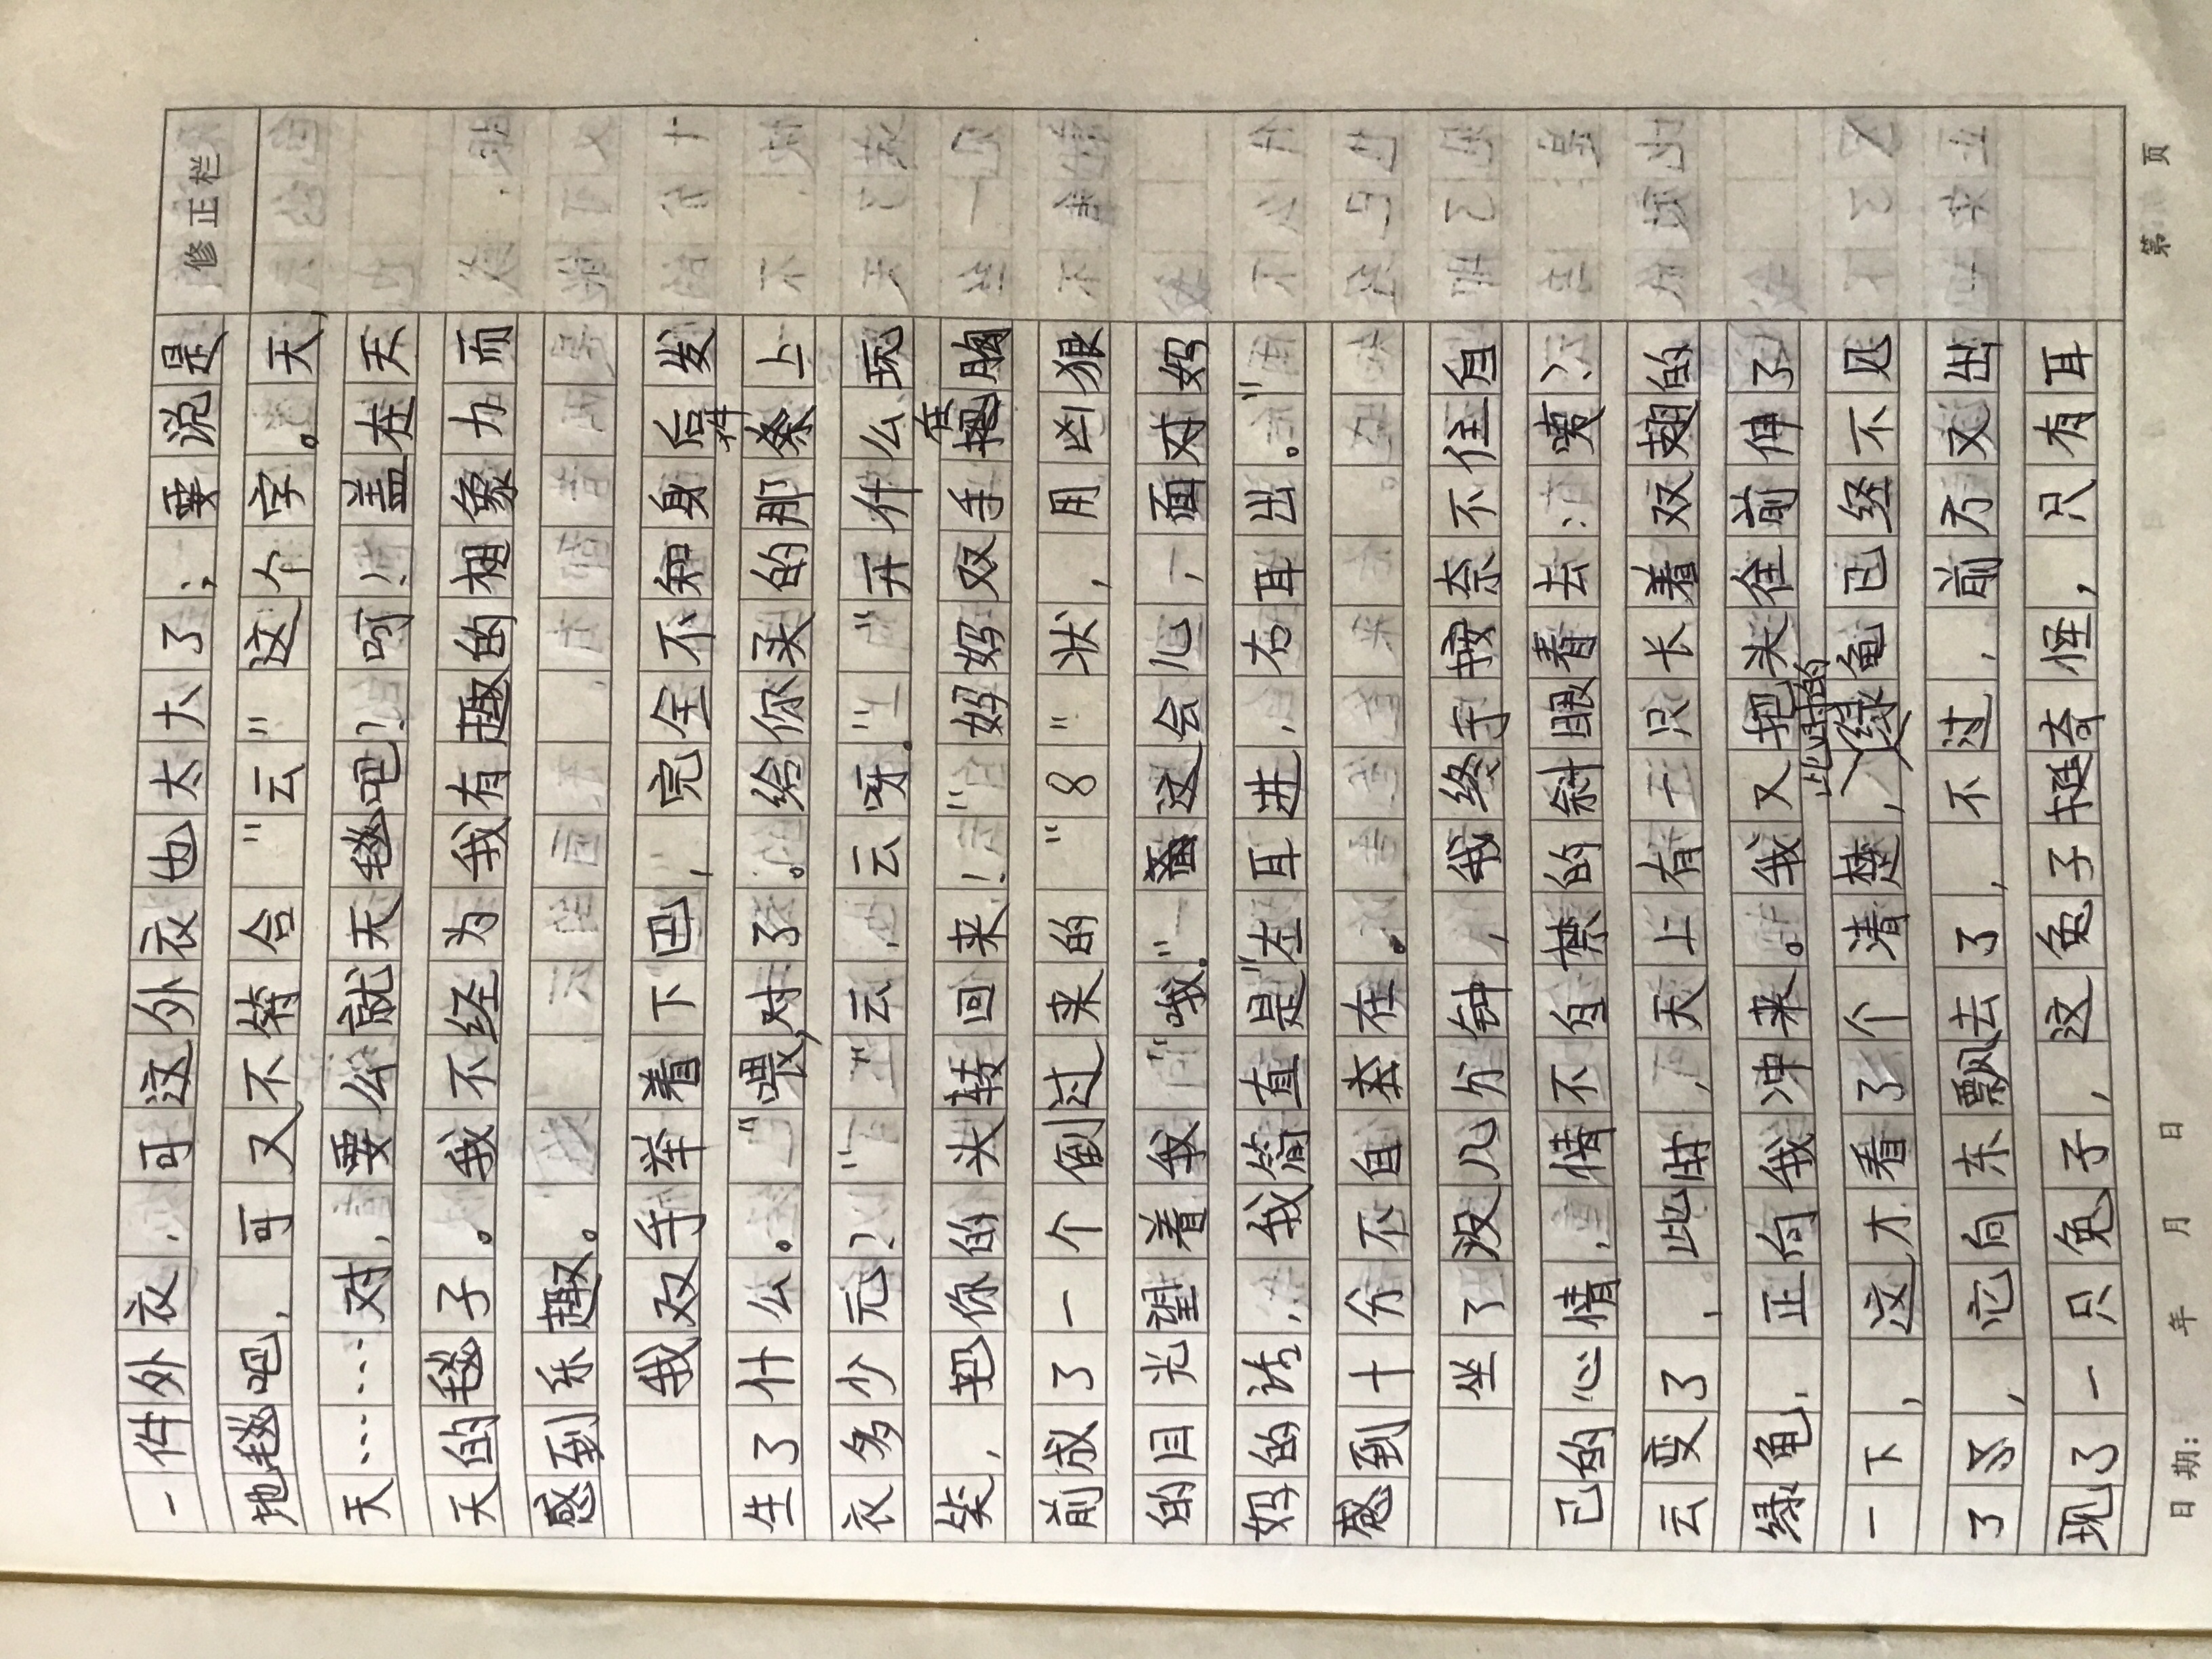 修正栏
一件外衣,可这外衣也太大了;要说是
地毯吧,可又不符合"云"这个字。天,
天……对,要么就天毯吧!呵!盖在天
天的毯子。我不经为我有趣的想象力而
感到乐趣。
我双手举着下巴,完全不知身后发
生了什么。"喂,对了。给你头的那条上
件
衣多少元?""云,云呀。""开什么玩
笑,把你的头转回来!"妈妈双手胸
在
前成了一个倒过来的"8"状,用凶狠
的目光望着我"哦。"这会儿,面对妈
妈的话,我简直是"左耳进,右耳出。"
感到十分不自在。
坐了没几分钟,我终于按奈不住自
己的心情,情不自禁的斜眼看去:咦?
云变了,此时,天上有一只长着双翅的
绿龟,正向我冲来。我又把头往前伸了
此时的
一下,这才看了个清楚,绿龟已经不见
了,它向东飘去了,不过,前方又出
现了一只兔子,这兔子挺奇怪,只有耳
日期: 年 月 日 第 页